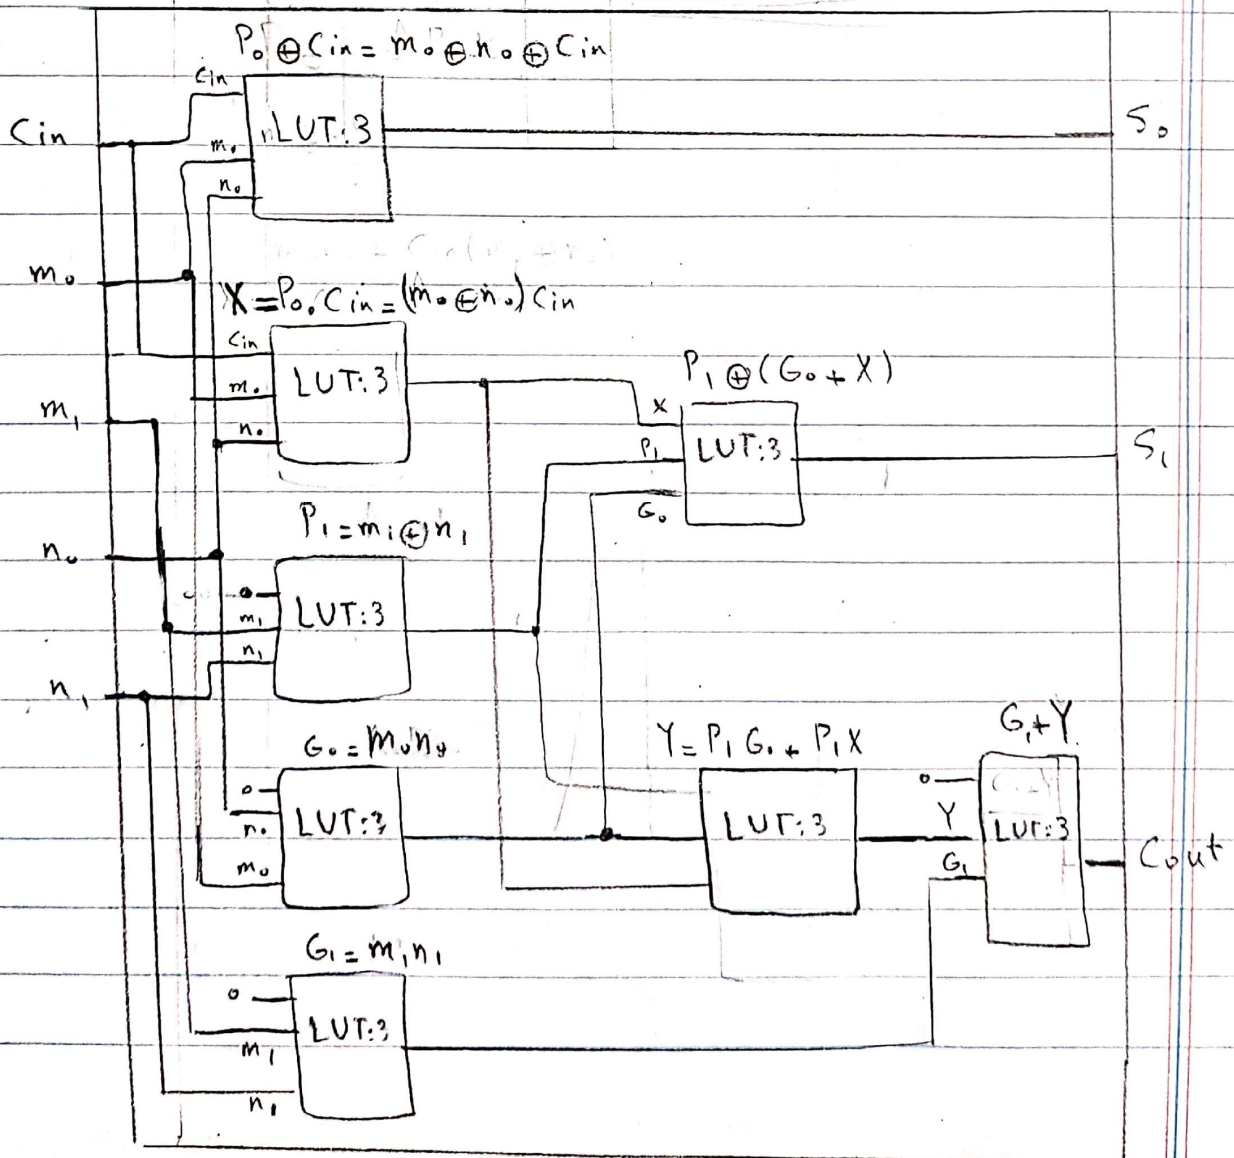 P₀ ⊕ Cin = m₀ ⊕ n₀ ⊕ Cin
Cin
Cin
m₀
n₀
LUT:3
S₀
m₀
X = P₀. Cin = (m₀ ⊕ n₀) Cin
Cin
m₀
n₀
LUT:3
m₁
P₁ ⊕ (G₀ + X)
X
P₁
G₀
LUT:3
S₁
n₀
P₁ = m₁ ⊕ n₁
0
m₁
n₁
LUT:3
n₁
G₀ = m₀n₀
0
n₀
m₀
LUT:3
Y = P₁ G₀ + P₁ X
LUT:3
G₁ + Y
0
Y
G₁
LUT:3
Cout
G₁ = m₁n₁
0
m₁
n₁
LUT:3